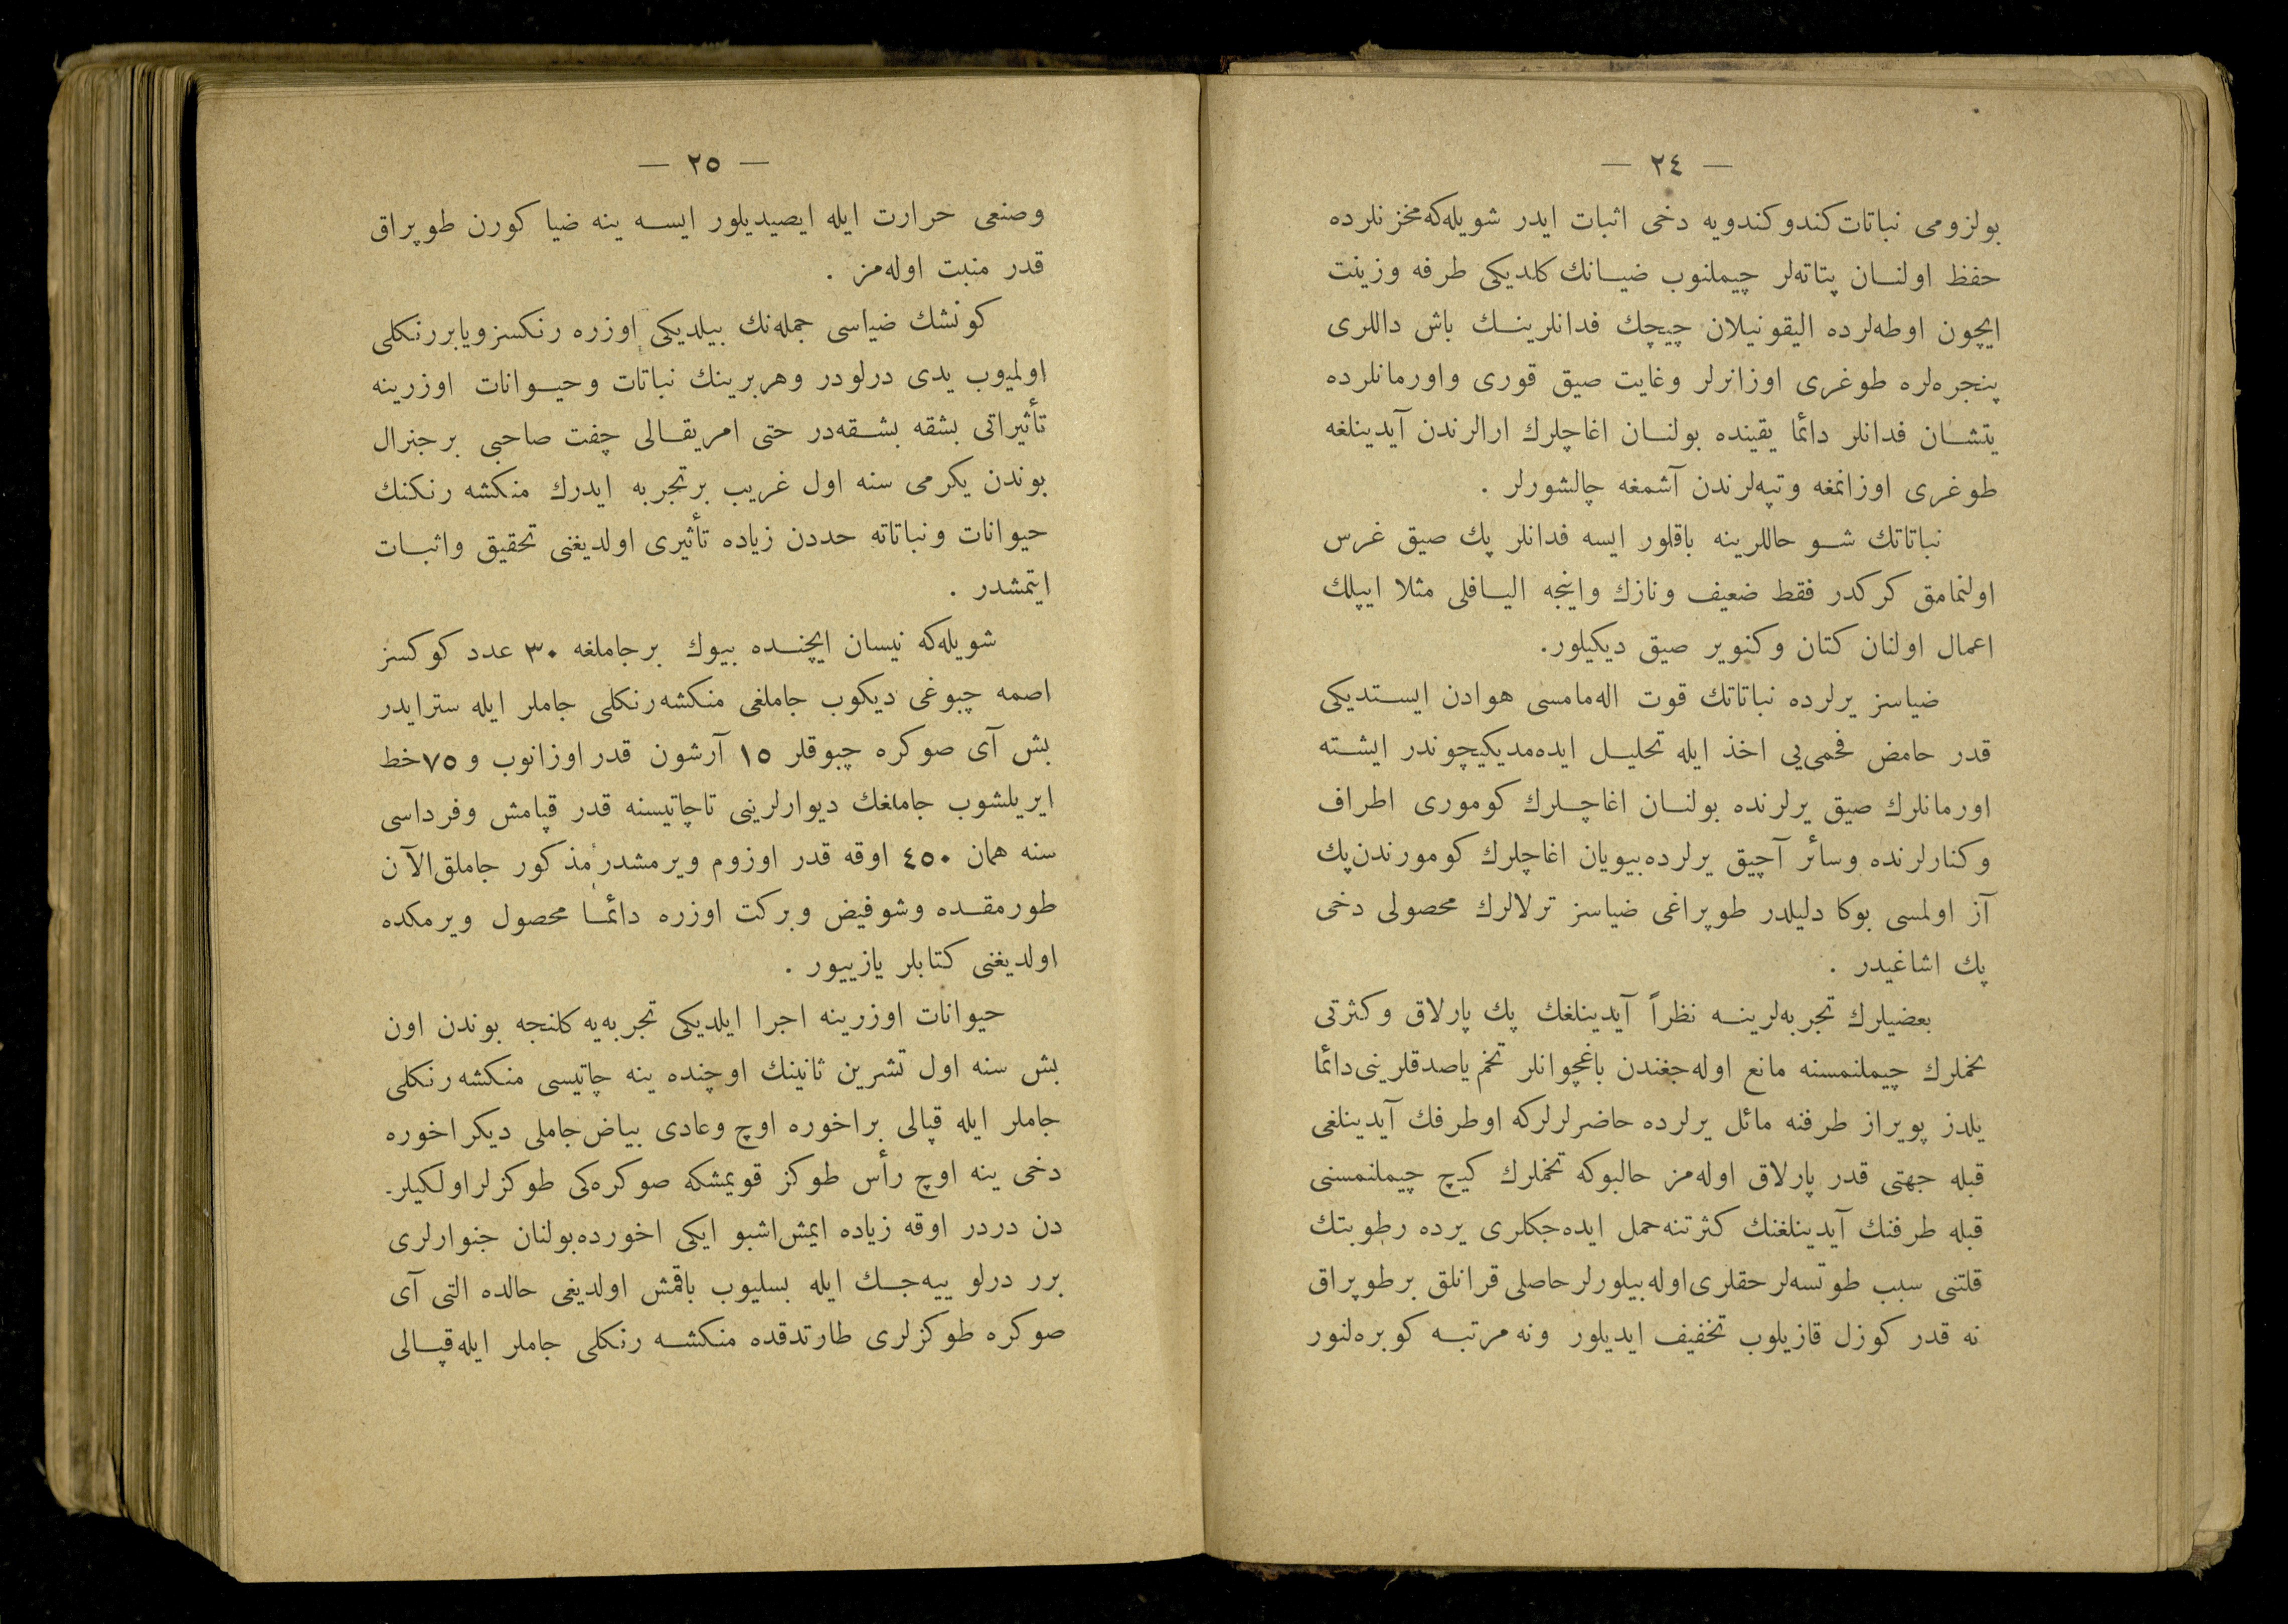 — ٢٤ —
بولزومی نباتات كندو كندویه دخی اثبات ایدر شویله‌كه مخزنلرده
حفظ اولنــان پتاته‌لر چیملنوب ضیــانك كلدیكی طرفه وزینت
ایچون اوطه‌لرده الیقونیلان چیچك فدانلرینــك باش داللری
پنجره‌لره طوغری اوزانرلر وغایت صیق قوری واورمانلرده
یتشــان فدانلر دائما یقینده بولنــان اغاچلرك ارالرندن آیدینلغه
طوغری اوزانمغه وتپه‌لرندن آشمغه چالشورلر .
نباتاتك شــو حاللرینه باقلور ایسه فدانلر پك صیق غرس
اولنمامق كركدر فقط ضعیف ونازك واینجه الیــافلی مثلا ایپلك
اعمال اولنان كتان وكنویر صیق دیكیلور.
ضیاسز یرلرده نباتاتك قوت اله‌مامسی هوادن ایســتدیكی
قدر حامض فحمی‌یی اخذ ایله تحلیــل ایده‌مدیكیچوندر ایشــته
اورمانلرك صیق یرلرنده بولنــان اغاچــلرك كوموری اطراف
وكنارلرنده وسائر آچیق یرلرده بیویان اغاچلرك كومورندن پك
آز اولمسی بوكا دلیلدر طوپراغی ضیاسز ترلالرك محصولی دخی
پك اشاغیدر .
بعضیلرك تجربه‌لرینــه نظراً آیدینلغك پك پارلاق وكثرتی
تخملرك چیملنمسنه مانع اوله‌جغندن باغچوانلر تخم یاصدقلرینی دائما
یلدز پویراز طرفنه مائل یرلرده حاضرلرلركه اوطرفك آیدینلغی
قبله جهتی قدر پارلاق اوله‌مز حالبوكه تخملرك كیچ چیملنمسنی
قبله طرفنك آیدینلغنك كثرتنه حمل ایده‌جكلری یرده رطوبتك
قلتنی سبب طوتسه‌لر حقلری اوله بیلورلر حاصلی قرانلق برطوپراق
نه قدر كوزل قازیلوب تخفیف ایدیلور ونه مرتبــه كوبره‌لنور
— ٢٥ —
وصنعی حرارت ایله ایصیدیلور ایســه ینه ضیا كورن طوپراق
قدر منبت اوله‌مز .
كونشك ضیاسی جمله‌نك بیلدیكی اوزره رنكسز ویا بررنكلی
اولمیوب یدی درلودر وهربرینك نباتات وحیــوانات اوزرینه
تأثیراتی بشقه بشــقه‌در حتی امریقــالی چفت صاحبی برجنرال
بوندن یكرمی سنه اول غریب برتجربه ایدرك منكشه رنكنك
حیوانات ونباتاته حددن زیاده تأثیری اولدیغنی تحقیق واثبــات
ایتمشدر .
شویله‌كه نیسان ایچنــده بیوك برجاملغه ٣٠ عدد كوكسز
اصمه چبوغی دیكوب جاملغی منكشه رنكلی جاملر ایله سترایدر
بش آی صوكره چبوقلر ١٥ آرشون قدر اوزانوب و ٧٥ خط
ایریلشوب جاملغك دیوارلرینی تاچاتیسنه قدر قپامش وفرداسی
سنه همان ٤٥٠ اوقه قدر اوزوم ویرمشدر مذكور جاملق الآن
طورمقــده وشوفیض وبركت اوزره دائمــا محصول ویرمكده
اولدیغنی كتابلر یازییور .
حیوانات اوزرینه اجرا ایلدیكی تجربه‌یه كلنجه بوندن اون
بش سنه اول تشرین ثانینك اوچنده ینه چاتیسی منكشه رنكلی
جاملر ایله قپالی براخوره اوچ وعادی بیاض جاملی دیكر اخوره
دخی ینه اوچ رأس طوكز قویمشكه صوكره‌كی طوكزلر اولكیلر-
دن دردر اوقه زیاده ایمش اشبو ایكی اخورده بولنان جنوارلری
برر درلو ییه‌جــك ایله بسلیوب باقمش اولدیغی حالده التی آی
صوكره طوكزلری طارتدقده منكشــه رنكلی جاملر ایله قپــالی